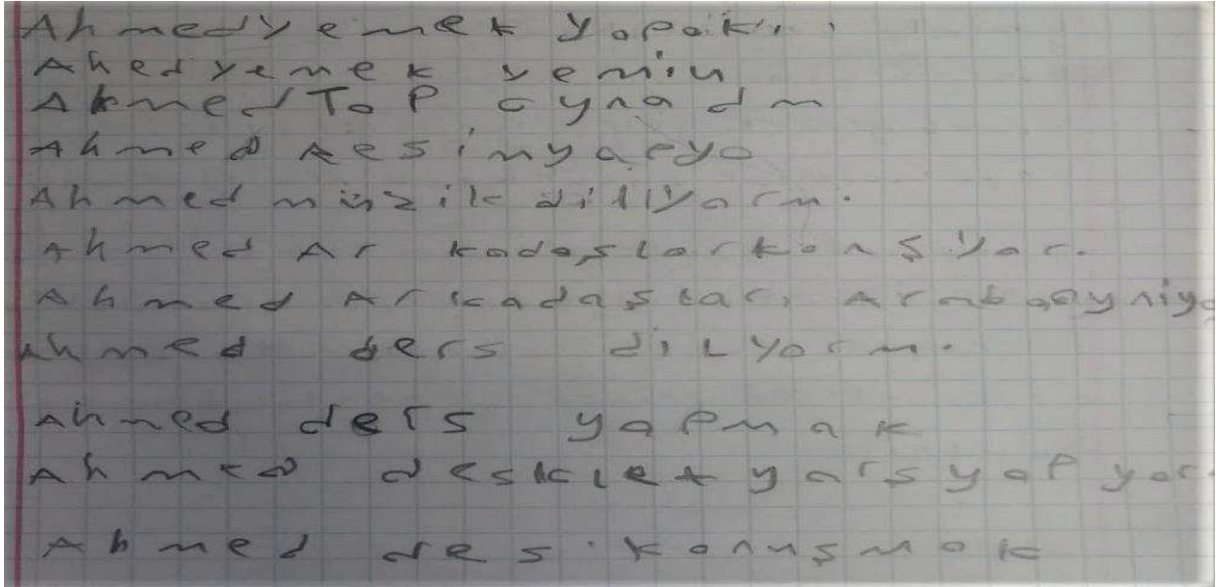 Ahmedyemek yapak..
Ahed yemek yemin
Ahmed ToP oynadm
Ahmed Resimyapyo
Ahmed müzik dillyorm.
Ahmed Ar kadaşlarkonşyor.
Ahmed Arkadaşlar, Araba oyniyo
Ahmed ders dilyorm.
Ahmed ders yapmak
Ahmed desiklet yarsyapyor
Ahmed des. konuşmak